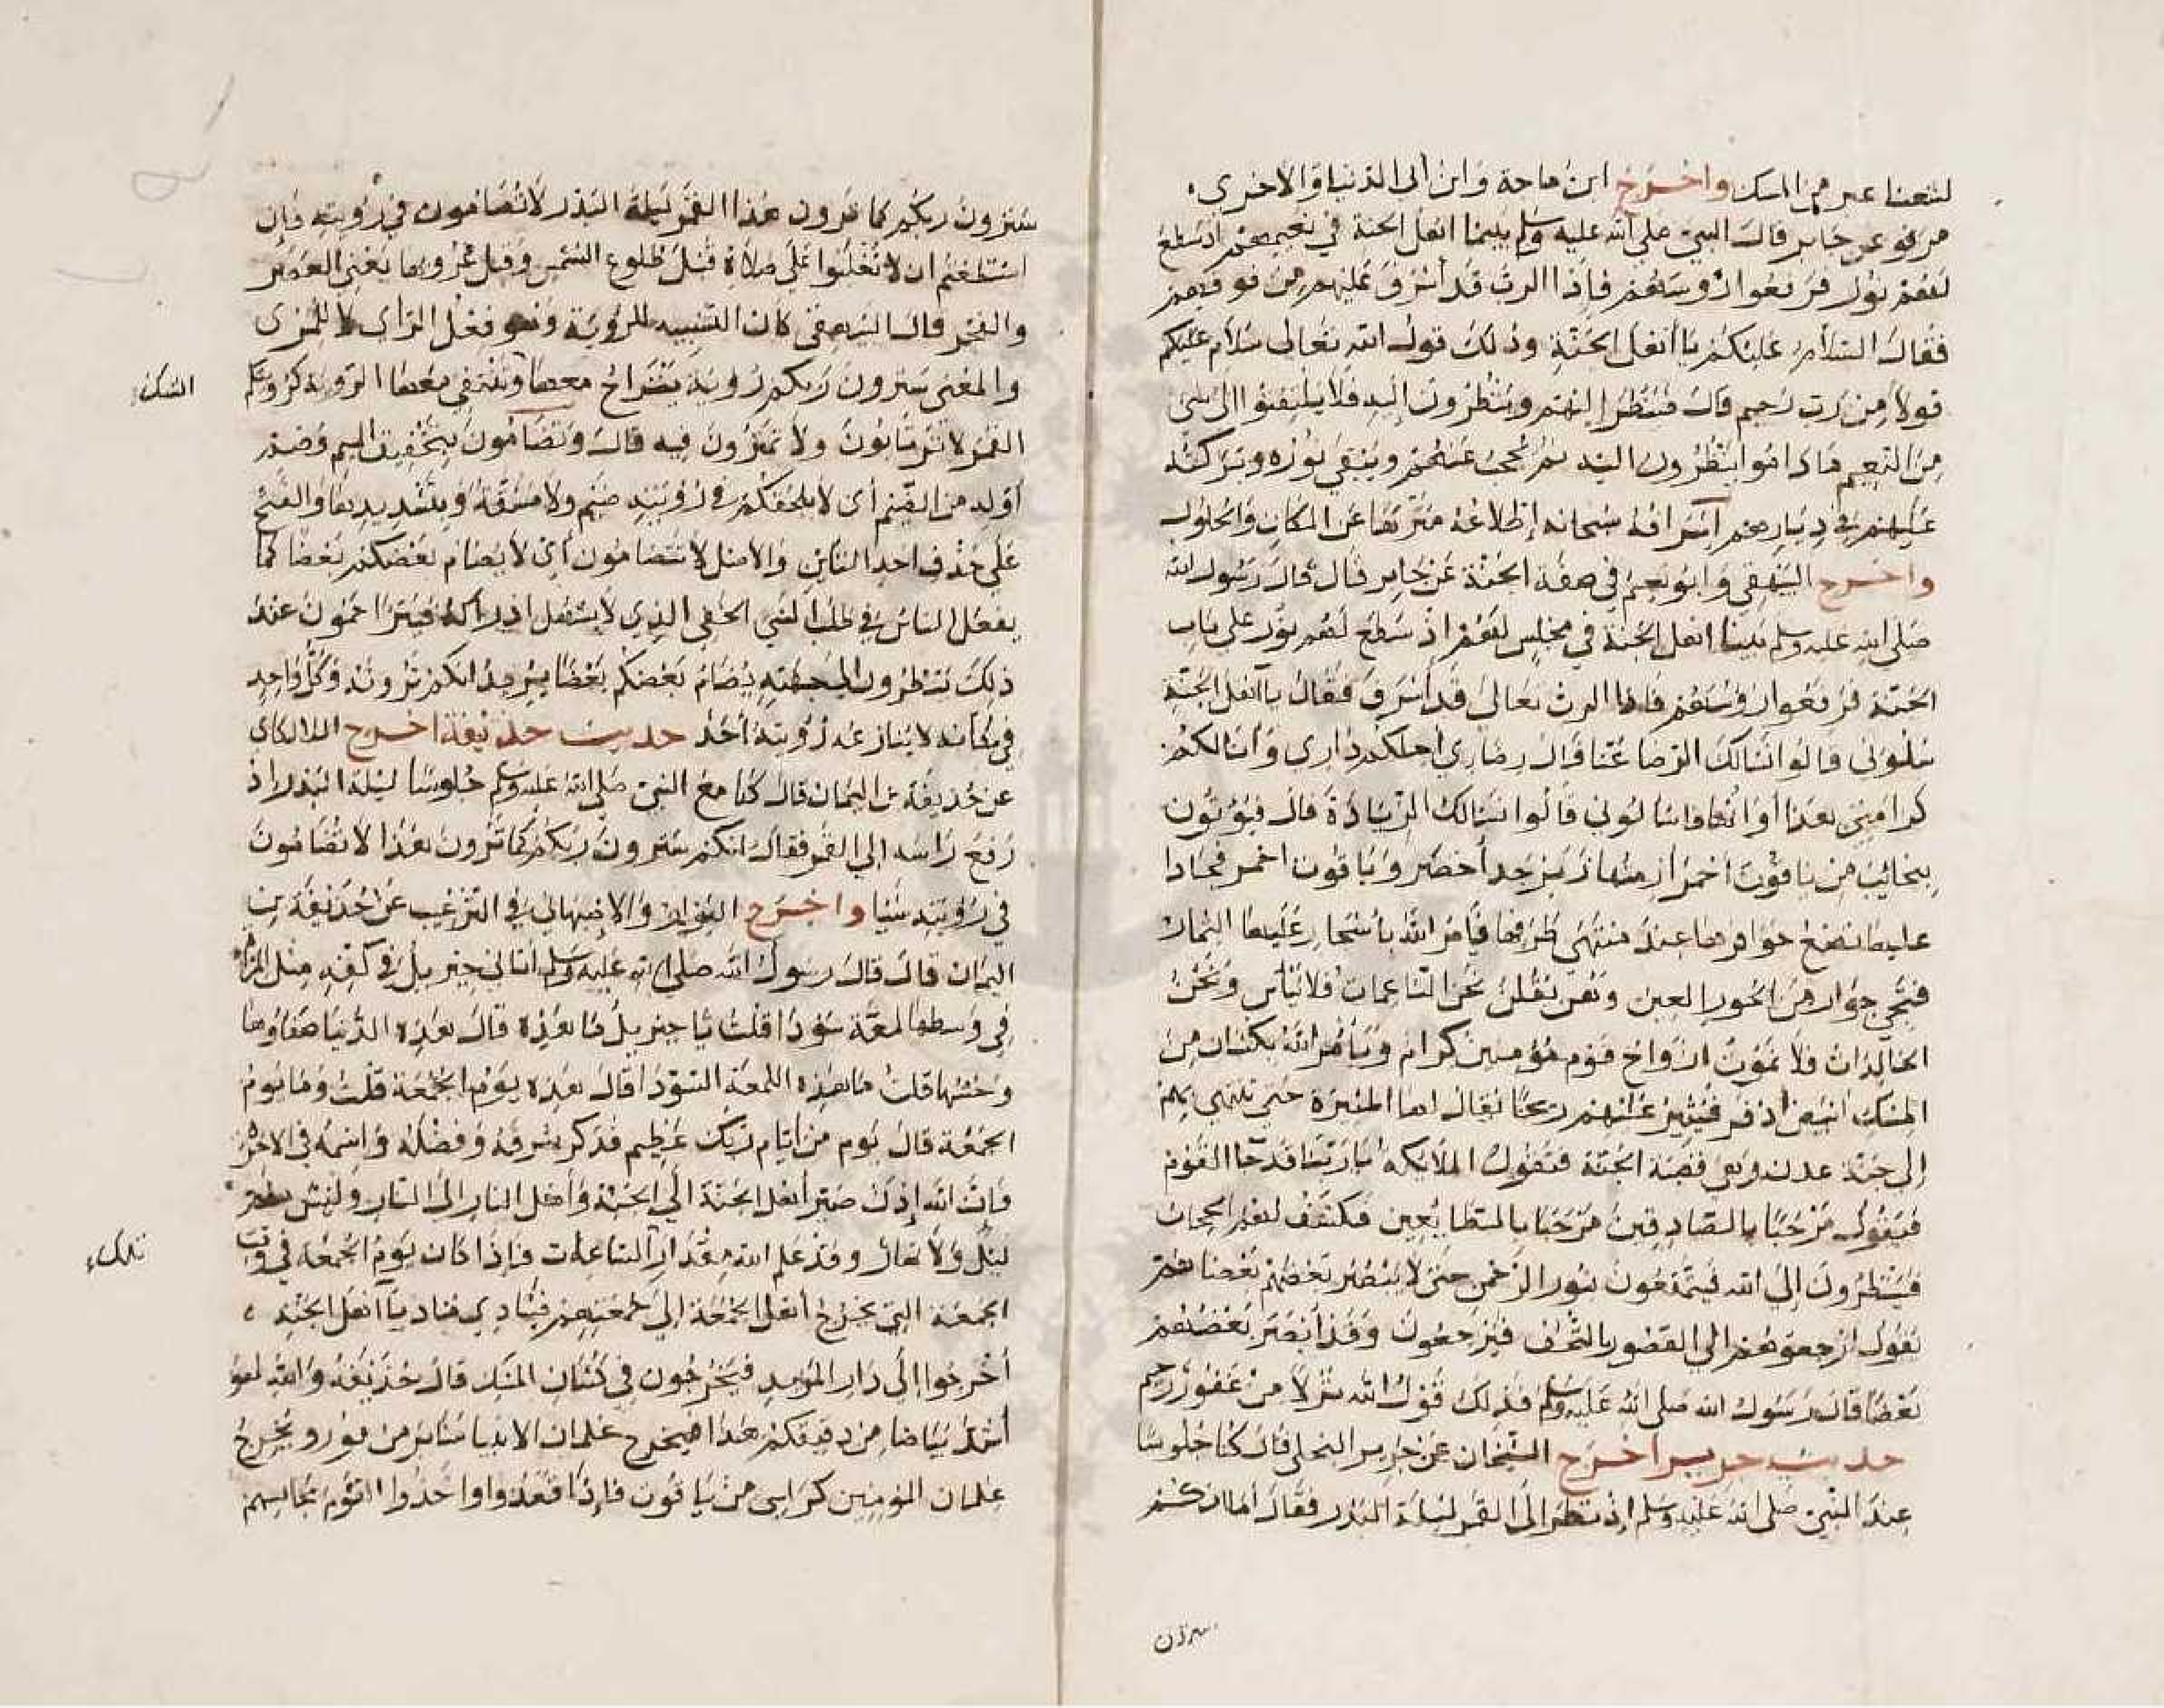 واخرج ابن ماجة وابن أبي الدنيا والآجري
عن جابر قال قال النبي صلى الله عليه وسلم بينما اهل الجنة في نعيمهم اذ سطع
لهم نور فرفعوا رؤسهم فإذا الرب قد أشرف عليهم من فوقهم
فقال السلام عليكم يا أهل الجنة وذلك قول الله تعالى سلام عليكم
قولا من رب رحيم قال فينظر إليهم وينظرون إليه فلا يلتفتوا الى شئ
من النعيم ما داموا ينظرون اليه ثم يحجب عنهم ويبقى نوره وبركته
عليهم في ديارهم اشرافه سبحانه إطلاعه منزها عن المكان والحلول
واخرج البيهقي وابو نعيم في صفة الجنة عن جابر قال قال رسول الله
صلى الله عليه وسلم بينا اهل الجنة في مجلس لهم إذ سطع لهم نور على باب
الجنة فرفعوا رؤسهم فاذا الرب تعالى قد أشرف فقال يا أهل الجنة
سلوني قالوا نسالك الرضا عنا قال رضاي احلكم داري وأنالكم
كرامتي هذا أوانها فاسألوني قالوا نسالك الزيادة قال فيؤتون
بنجائب من ياقوت احمر ازمتها زبرجد أخضر وياقوت احمر فجاوا
عليها تضع حوافرها عند منتهى طرفها فيأمر الله بأشجار عليها الثمار
فتجي جوار من الحور العين وهن يقلن نحن الناعمات فلا نباس ونحن
الخالدات فلا نموت ازواج قوم مؤمنين كرام ويأمر الله بكثبان من
المسك ابيض اذفر فيثير عليهم ريحا يقال لها المثيرة حتى تنتهي بهم
إلى جنة عدن وهي قصبة الجنة فتقول الملائكة يا ربنا قد جا القوم
فيقول مرحبا بالصادقين مرحبا بالطايعين فيكشف لهم الحجاب
فينظرون إلى الله فيتمتعون بنور الرحمن حتى لا يبصر بعضهم بعضا ثم
يقول ارجعوهم الي القصور بالتحف فيرجعون وقد أبصر بعضهم
بعضا قال رسول الله صلى الله عليه وسلم فذلك قول الله نزلا من غفور رحيم
حديث جرير اخرج الشيخان عن جرير البجلي قال كنا جلوسا
عند النبي صلى الله عليه وسلم إذ نظر الى القمر ليلة البدر فقال اما انكم
سترون
سترون ربكم كما ترون هذا القمر ليلة البدر لا تضامون في رؤيته فإن
استطعتم ان لا تغلبوا على صلاة قبل طلوع الشمس وقبل غروبها يعني العصر
والفجر قال البيهقي كان التشبيه للرؤية وهو فعل الرائي لا للمرئ
والمعنى سترون ربكم رؤية ينزاح معها وتنتفي معها الرؤية كرؤيتكم
الشك
القمر لا ترتابون ولا تمترون فيه قال وتضامون بتخفيف الميم وضم
أوله من الضيم أي لا يلحقكم في رؤيته ضيم ولا مشقة وبتشديدها والفتح
على حذف احد التائين والاصل لا تتضامون أي لا يضام بعضكم بعضا كما
يفعل الناس في طلب الشي الخفي الذي لا يسهل ادراكه فيتزاحمون عند
ذلك ينظرون الى جهته يضام بعضكم بعضا يريد انكم ترونه وكل واحد
في مكانه لا ينازعه رؤيته أحد حديث حذيفة اخرج اللالكاى
عن حذيفة بن اليمان قال كنا مع النبي صلى الله عليه وسلم جلوسا ليلة البدر اذ
رفع راسه إلى القمر فقال انكم سترون ربكم كما ترون هذا لا تضامون
في رؤيته شيا واخرج البزار والاصبهاني في الترغيب عن حذيفة بن
اليمان قال قال رسول الله صلى الله عليه وسلم أتاني جبريل في كفه مثل المرآة
في وسطها لمعة سودا قلت يا جبريل ما هذه قال هذه الدنيا صفاؤها
وحسنها قلت ما هذه اللمعة السودا قال هذه يوم الجمعة قلت وما يوم
الجمعة قال يوم من أيام ربك عظيم فذكر شرفه وفضله واسمه في الاخرة
فان الله إذ صير أهل الجنة الى الجنة وأهل النار إلى النار وليس ثم
ليل ولا نهار وقد علم الله مقدار الساعات فإذا كان يوم الجمعة في وقت
تلك
الجمعة التي يخرج أهل الجمعة إلى جمعتهم فينادي مناد يا أهل الجنة
أخرجوا إلى دار المزيد فيخرجون في كثبان المسك قال حذيفة والله لهو
أشد بياضا من دقيقكم هذا فيخرج غلمان الانبيا منابر من نور ويخرج
غلمان المومنين كراسي من ياقوت فإذا قعدوا واخذوا القوم مجالسهم